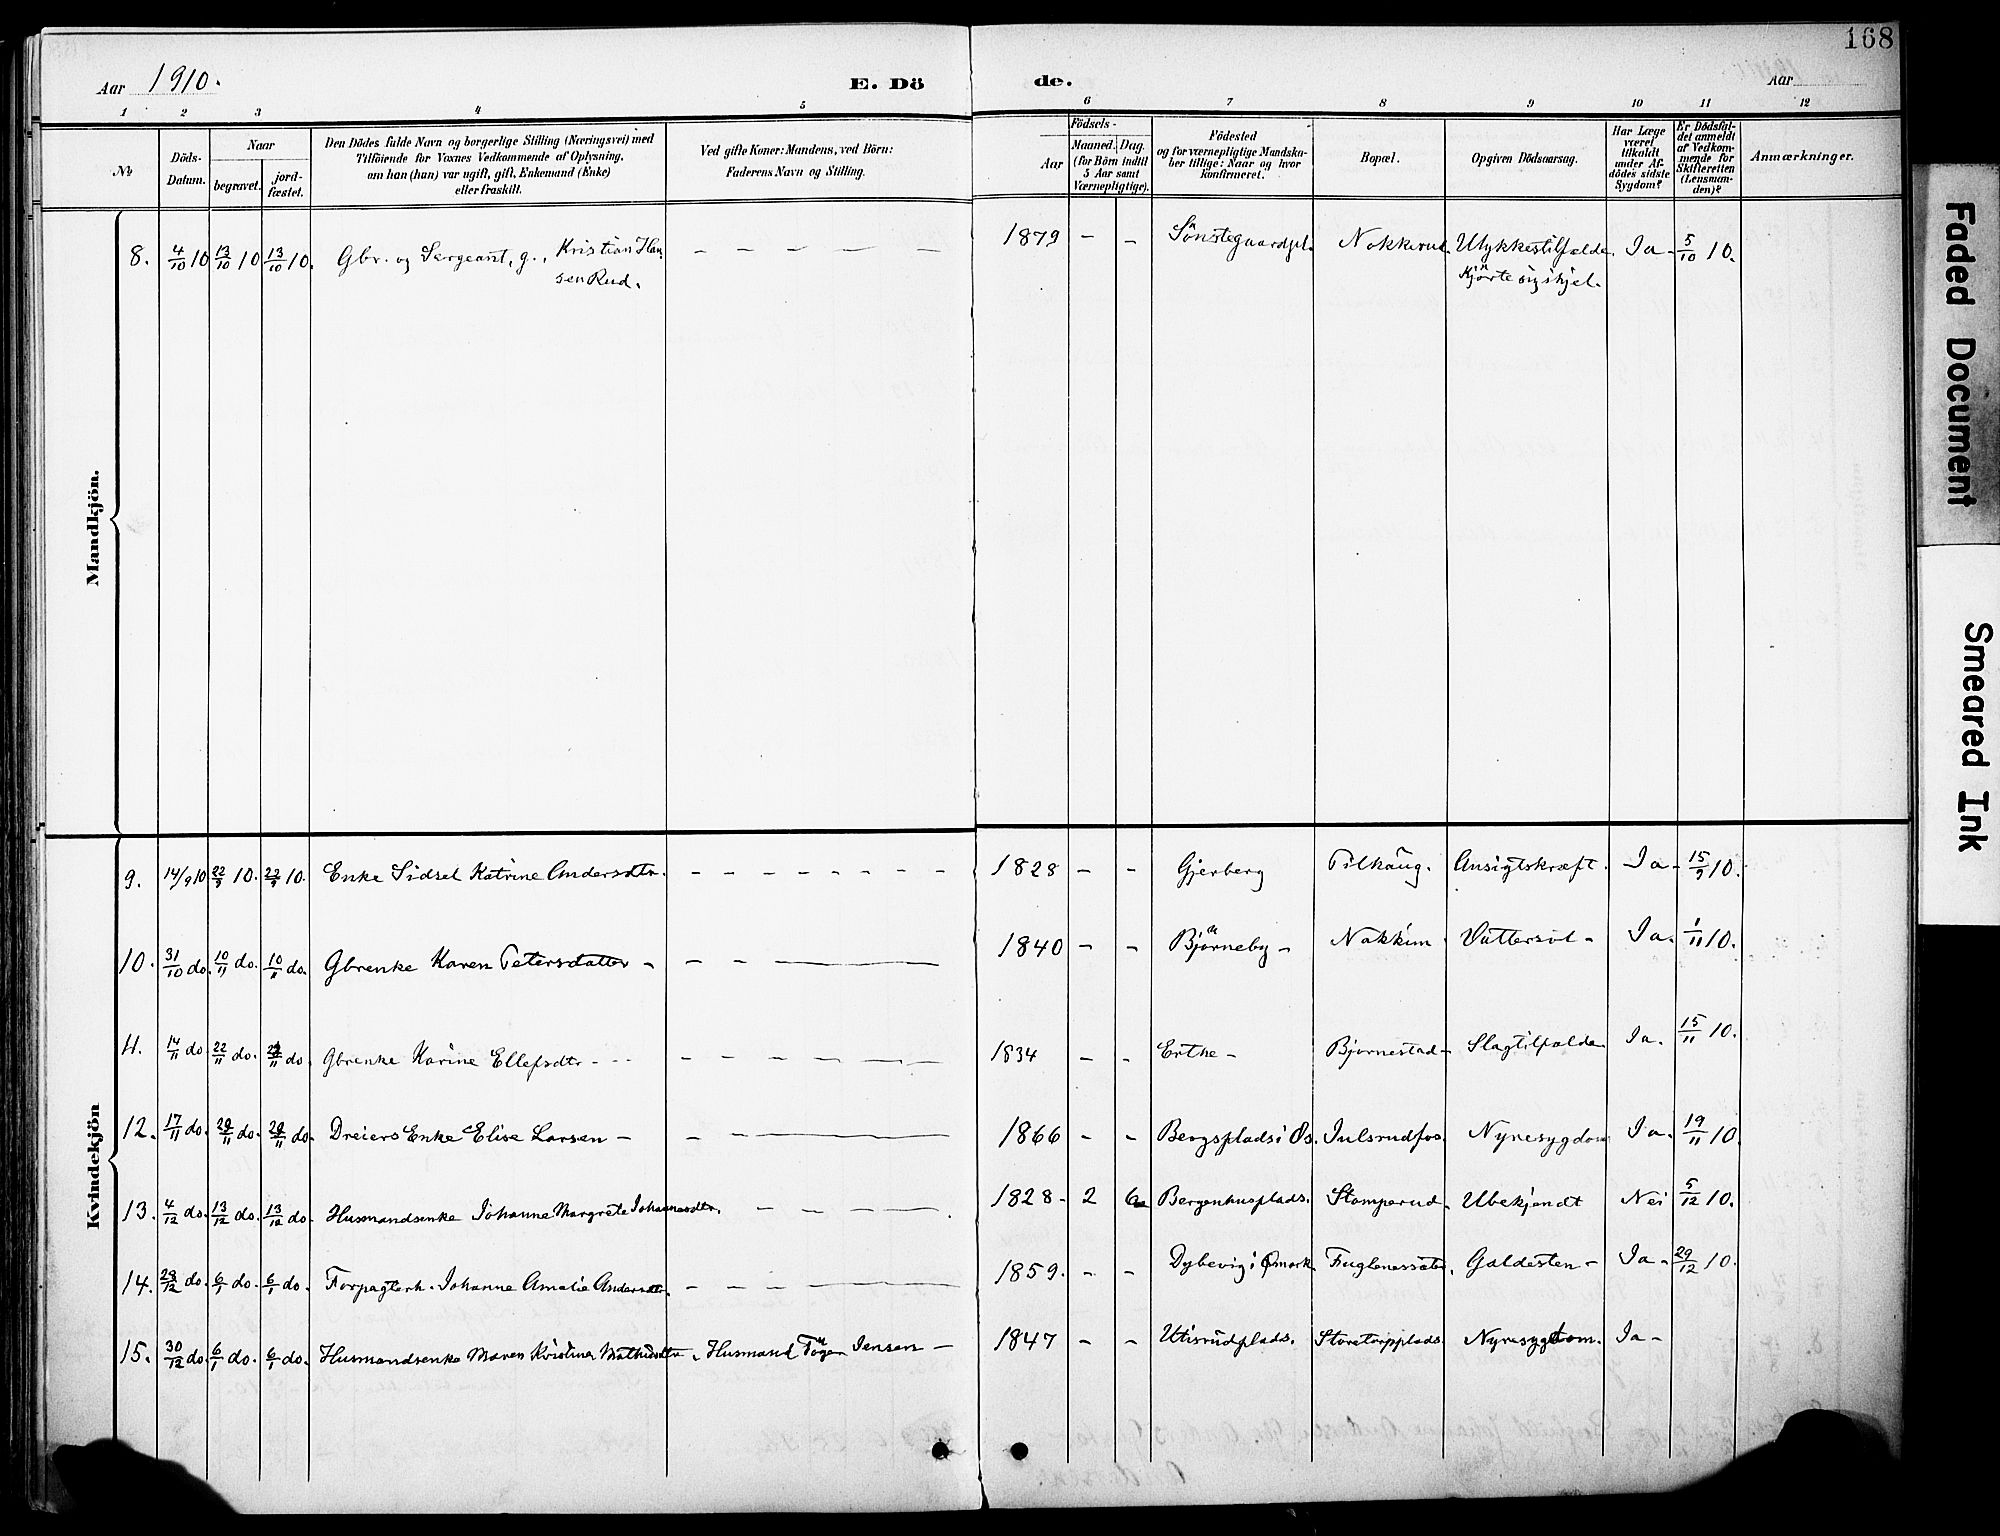 168
Aar 1910.
E. Döde.
Aar
1 2 3 4 5 6 7 8 9 10 11 12
№
Döds-Datum.
Naar
begravet.
jord-fæstet.
Den Dödes fulde Navn og borgerlige Stilling (Næringsvei) med
Tilföiende for Voxnes Vedkommende af Oplysning,
om han (hun) var ugift, gift, Enkemand (Enke)
eller fraskilt.
Ved gifte Koner: Mandens, ved Börn:
Faderens Navn og Stilling.
Födsels-
Aar
Maaned. Dag.
(for Börn indtil
5 Aar samt
Værnepligtige).
Födested
og for værnepligtige Mandska-
ber tillige: Naar og hvor
konfirmeret.
Bopæl.
Opgiven Dödsaarsag.
Har Læge
været
tilkaldt
under Af-
dödes sidste
Sygdom?
Er Dödsfal-
det anmeldt
af Vedkom-
mende for
Skifteretten
(Lensman-
den)?
Anmærkninger.
Mandkjön.
8. 4/10 10 13/10 10 13/10 10. Gbr. og Sergeant, g., Kristian Han- – – – – – 1879 – – Sönstegaardpl. Nokkerud. Ulykkestilfælde. Ja – 5/10 10.
sen Rud. Kjörte sig ihjel.
Kvindekjön
9. 14/9 10 22/9 10. 22/9 10. Enke Sidsel Katrine Andersdtr. – – – – – – – – 1828 – – Gjerberg Tilkaug. Ansigtskræft. Ja – 15/9 10.
10. 31/10 do. 10/11 do. 10/11 do. Gbrenke Karen Petersdatter – – – – – – 1840 – – Björneby – Nakkim Vattersot – Ja. 1/11 10.
11. 14/11 do. 22/11 do. 22/11 do. Gbrenke Karine Ellefsdtr – – – – – – – 1834 – – Erthe – Bjørnestad – Slagtilfælde Ja. 15/11 10.
12. 17/11 do. do. do. Dreiers Enke Elise Larsen – – – – – 1866 – – Bergsplads i Øs. Julsrudfos. Nyresygdom Ja. 19/11 10.
13. 4/12 do. 13/12 do. 13/12 do. Husmandsenke Johanne Margrete Johannesdtr. – – – – 1828 – 2 6 Bergenhusplads. Stomperud. Ubekjendt Nei 5/12 10.
14. 29/12 do. 6/1 do. 6/1 do. Forpagterk. Johanne Amalie Andersdtr. – – – – – 1859. – – Dybevig i Ømark. Fuglenessæter. Galdesten – Ja – 29/12 10.
15. 30/12 do. 6/1 do. 6/1 do. Husmandsenke Maren Kristine Mathisdtr. Husmand Jensen – 1847 – – Utisrudplads. Storetorpplads. Nyresygdom. Ja –
Faded Document
Smeared Ink